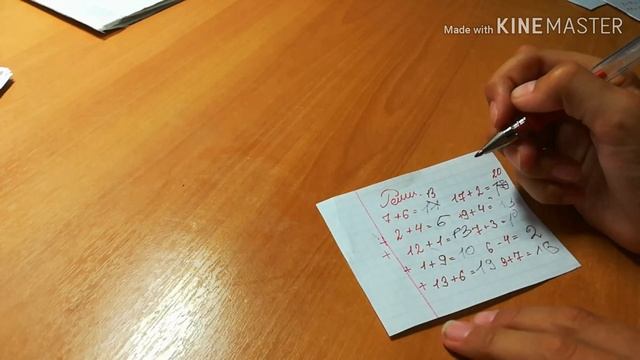 Made with KINEMASTER
Реши.
13 20
7+6= 17+2=
2+4=6 9+4=
12+1=13 7+3=
+ 1+9=10 6-4=2
+ 13+6=19 9+7=13